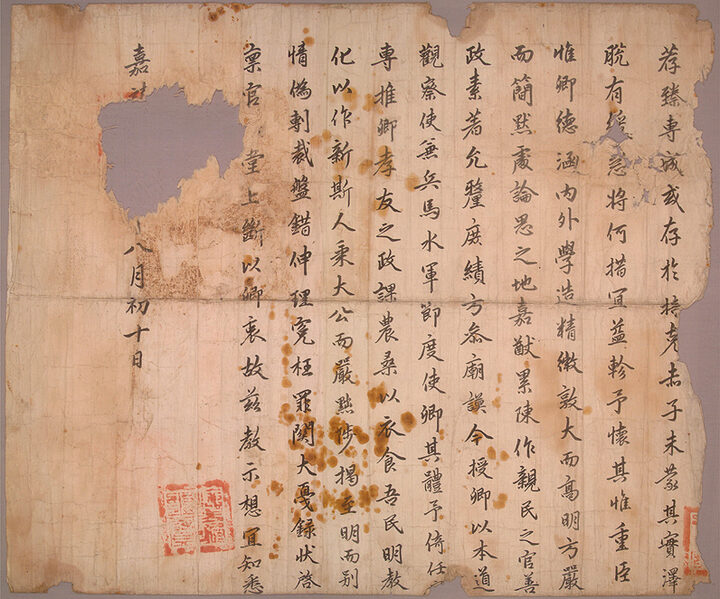 荐臻專城或存於掊克赤子未蒙其實澤
脫有急將何措宜益軫予懷其惟重臣
惟卿德涵內外學造精微敦大而高明方嚴
而簡默處論思之地嘉猷累陳作親民之官善
政素著允釐庶績方參廟謨今授卿以本道
觀察使兼兵馬水軍節度使卿其體予倚任
專推卿孝友之政課農桑以衣食吾民明教
化以作新斯人秉大公而嚴黜陟揭至明而別
情僞剸裁盤錯伸理冤枉罪關大錄狀啓
稟官堂上斷以卿衷故玆教示想宜知悉
嘉八月初十日